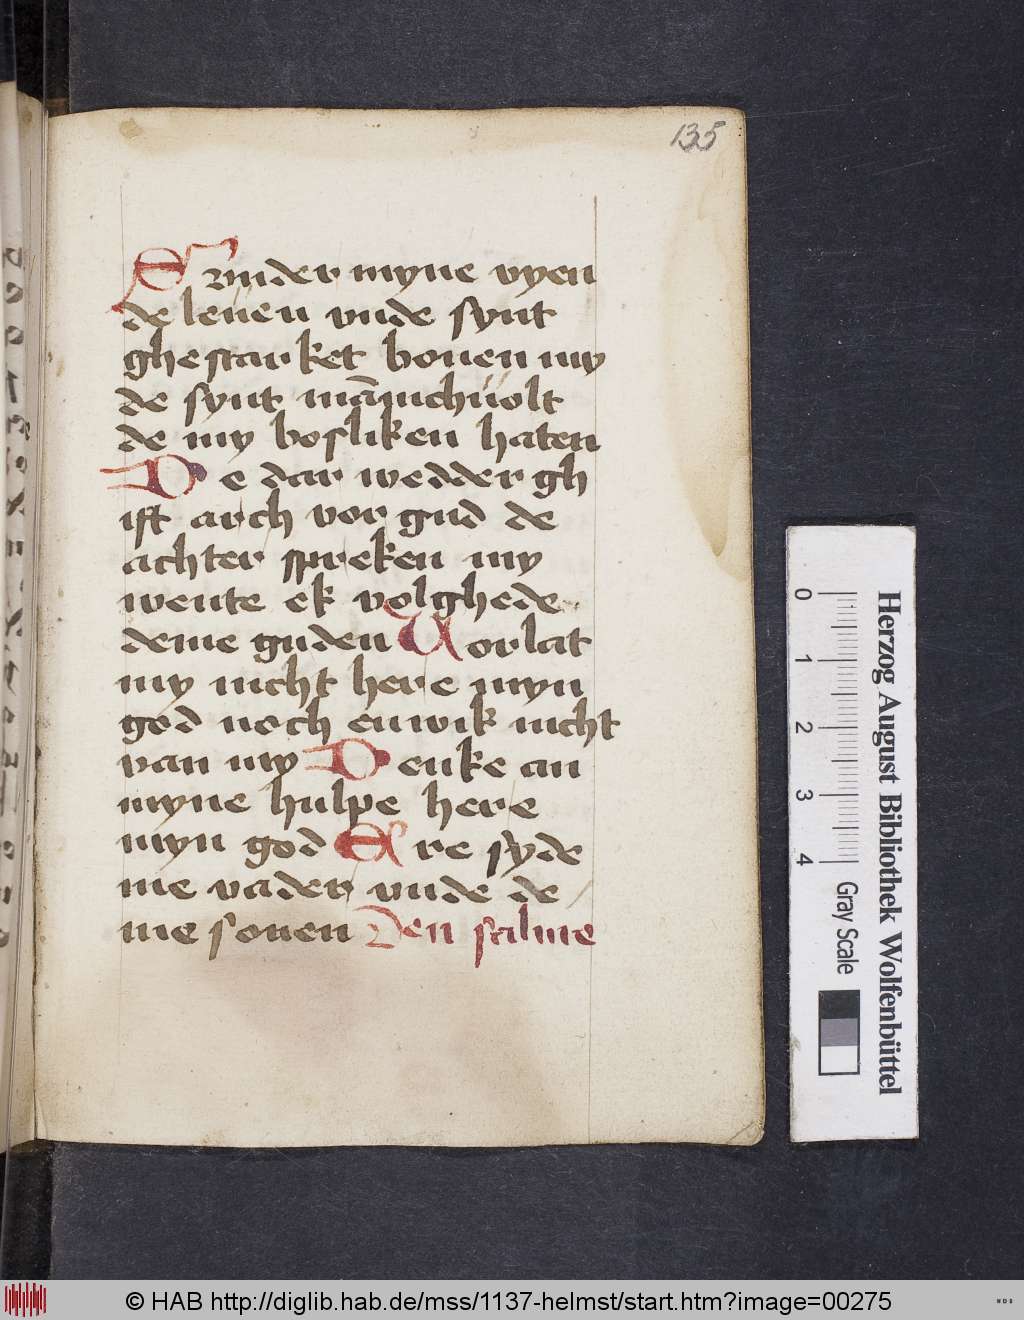 135
Er vnder myne vyen
de leuen vnde synt
ghestarket bouen my
de synt mānichuolt
de my bosliken haten
De dar wedder gh
ift arch vor gud de
achter spreken my
wente ek volghede
deme guden Uorlat
my nicht here myn
god noch enwik nicht
van my Denke an
myne hulpe here
myn god Ere sy de
me vader vnde de
me sonen Den salme
Herzog August Bibliothek Wolfenbüttel
0 1 2 3 4 Gray Scale
© HAB http://diglib.hab.de/mss/1137-helmst/start.htm?image=00275